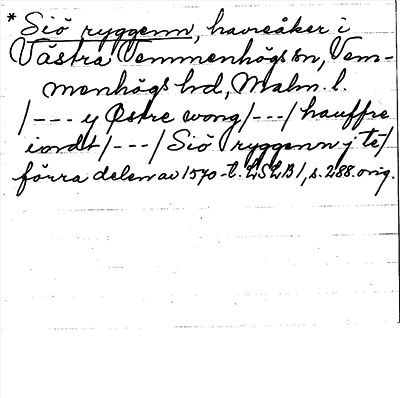 * Siö ryggenn, havreåker i
Västra Vemmenhögs sn, Vem-
menhögs hd, Malm. l.
/--- y Østre wong/---/hauffre
iordt/---/Siö ryggenn j té/
förra delen av 1570-t. LSLB1, s. 288. orig.